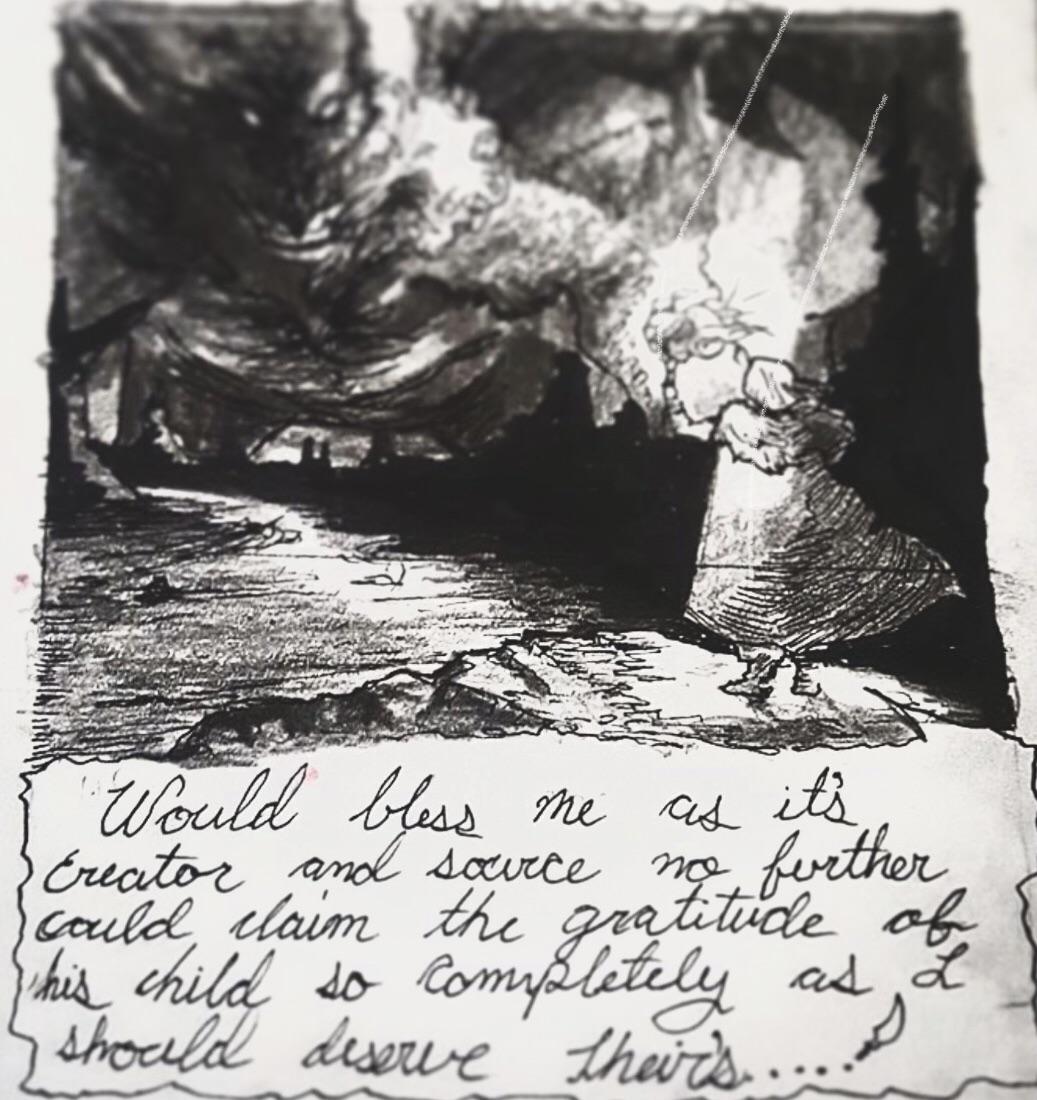 Would bless me as it's
Creator and source no further
could claim the gratitude of
his child so completely as I
should deserve Their's.....